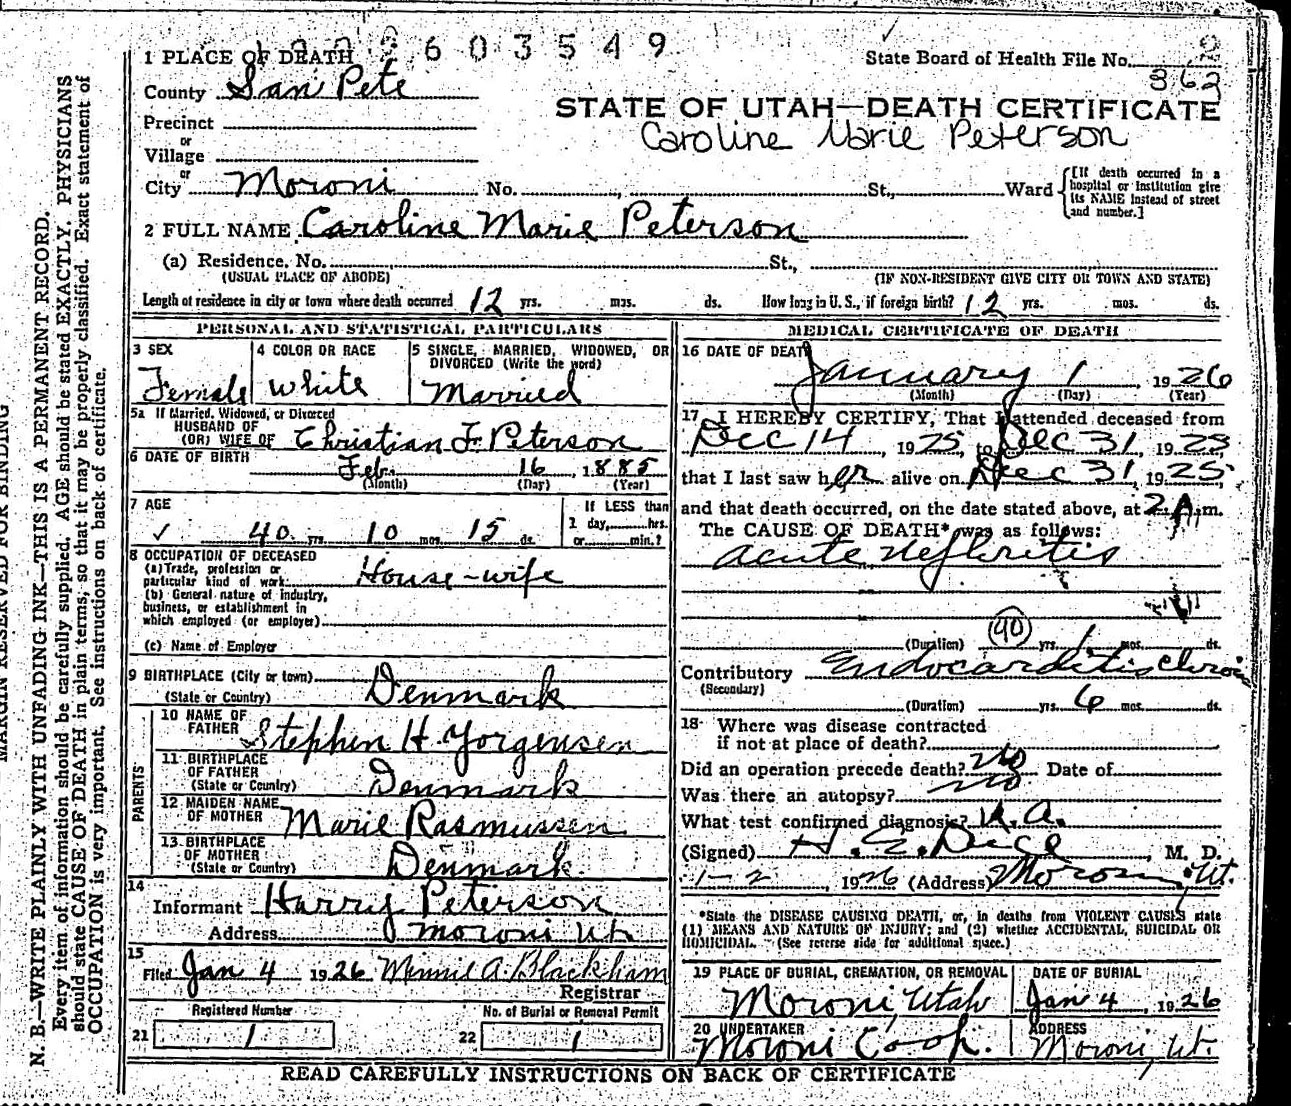 603549
1 PLACE OF DEATH
State Board of Health File No. 2
362
County San Pete
STATE OF UTAH—DEATH CERTIFICATE
Caroline Marie Peterson
Precinct
or
Village
or
City Moroni No. St., Ward
[If death occurred in a hospital or institution give its NAME instead of street and number.]
2 FULL NAME Caroline Marie Peterson
(a) Residence, No. St.,
(USUAL PLACE OF ABODE) (IF NON-RESIDENT GIVE CITY OR TOWN AND STATE)
Length of residence in city or town where death occurred 12 yrs. mos. ds. How long in U. S., if foreign birth? 12 yrs. mos. ds.
PERSONAL AND STATISTICAL PARTICULARS
3 SEX
Female
4 COLOR OR RACE
White
5 SINGLE, MARRIED, WIDOWED, OR DIVORCED (Write the word)
Married
5a If Married, Widowed, or Divorced
HUSBAND OF
(OR) WIFE OF Christian F. Peterson
6 DATE OF BIRTH
Feb. 16, 1885
(Month) (Day) (Year)
7 AGE
✓ 40 yrs. 10 mos. 15 ds.
If LESS than
1 day, hrs.
or min.?
8 OCCUPATION OF DECEASED
(a) Trade, profession or
particular kind of work House-wife
(b) General nature of industry,
business, or establishment in
which employed (or employer)
(c) Name of Employer
9 BIRTHPLACE (City or town)
(State or Country) Denmark
PARENTS
10 NAME OF
FATHER Stephen H. Yorgensen
11 BIRTHPLACE
OF FATHER
(State or Country) Denmark
12 MAIDEN NAME
OF MOTHER Marie Rasmussen
13 BIRTHPLACE
OF MOTHER
(State or Country) Denmark
14
Informant Harry Peterson
Address Moroni Ut
15
Filed Jan 4 1926 Minnie A. Blackham
Registrar
Registered Number
21 1
No. of Burial or Removal Permit
22 1
MEDICAL CERTIFICATE OF DEATH
16 DATE OF DEATH
January 1, 1926
(Month) (Day) (Year)
17 I HEREBY CERTIFY, That I attended deceased from
Dec 14 1925, Dec 31, 1925
that I last saw her alive on Dec 31, 1925,
and that death occurred, on the date stated above, at 2 A.m.
The CAUSE OF DEATH* was as follows:
acute Nephritis
(Duration) yrs. 1 mos. ds.
40
Contributory Endocarditis Chronic
(Secondary)
(Duration) yrs. 6 mos. ds.
18 Where was disease contracted
if not at place of death?
Did an operation precede death? No Date of
Was there an autopsy? no
What test confirmed diagnosis? U.A.
(Signed) H. E. M. D.
1-2, 1926 (Address) Moroni, Ut.
*State the DISEASE CAUSING DEATH, or, in deaths from VIOLENT CAUSES state
(1) MEANS AND NATURE OF INJURY; and (2) whether ACCIDENTAL, SUICIDAL OR
HOMICIDAL. (See reverse side for additional space.)
19 PLACE OF BURIAL, CREMATION, OR REMOVAL
Moroni, Utah
DATE OF BURIAL
Jan 4, 1926
20 UNDERTAKER
Moroni Coop.
ADDRESS
Moroni, Ut.
READ CAREFULLY INSTRUCTIONS ON BACK OF CERTIFICATE
MARGIN RESERVED FOR BINDING
N. B.—WRITE PLAINLY WITH UNFADING INK—THIS IS A PERMANENT RECORD.
Every item of information should be carefully supplied. AGE should be stated EXACTLY. PHYSICIANS
should state CAUSE OF DEATH in plain terms, so that it may be properly classified. Exact statement of
OCCUPATION is very important. See instructions on back of certificate.